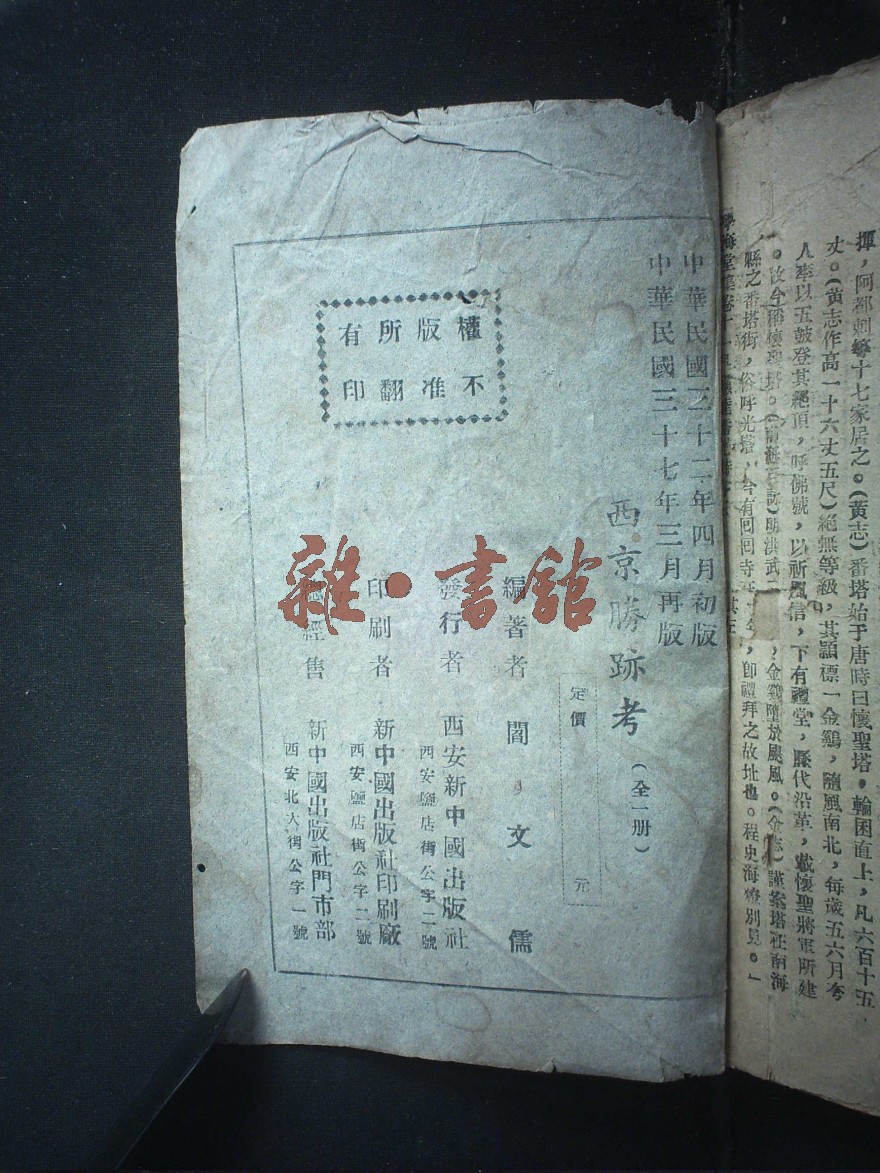 揮，阿都剌等十七家居之。（黃志）番塔始于唐時曰懷聖塔。輪囷直上，凡六百十五
丈。（黃志作高一十六丈五尺）絕無等級，其頴標一金鷄，隨風南北，每歲五六月夸
人率以五鼓登其絕頂，呼佛號，以祈風信，下有禮堂，歷代沿革，載懷聖將軍所建
。故今稱懷聖塔。 明洪武 ，金鷄墮於颶風。（金志）謹案塔在南海
縣之番塔街，俗呼光塔，今有回回寺 ，卽禮拜之故址也。程史海獠別見。」
學海堂集卷十一
中華民國三十二年四月初版
中華民國三十七年三月再版
西京勝跡考（全一册）
定價 元
編著者 閻文儒
發行者 西安新中國出版社
西安鹽店街公字二號
印刷者 新中國出版社印刷廠
西安鹽店街公字二號
經售 新中國出版社門市部
西安北大街公字一號
權版所有
不准翻印
雜·書館